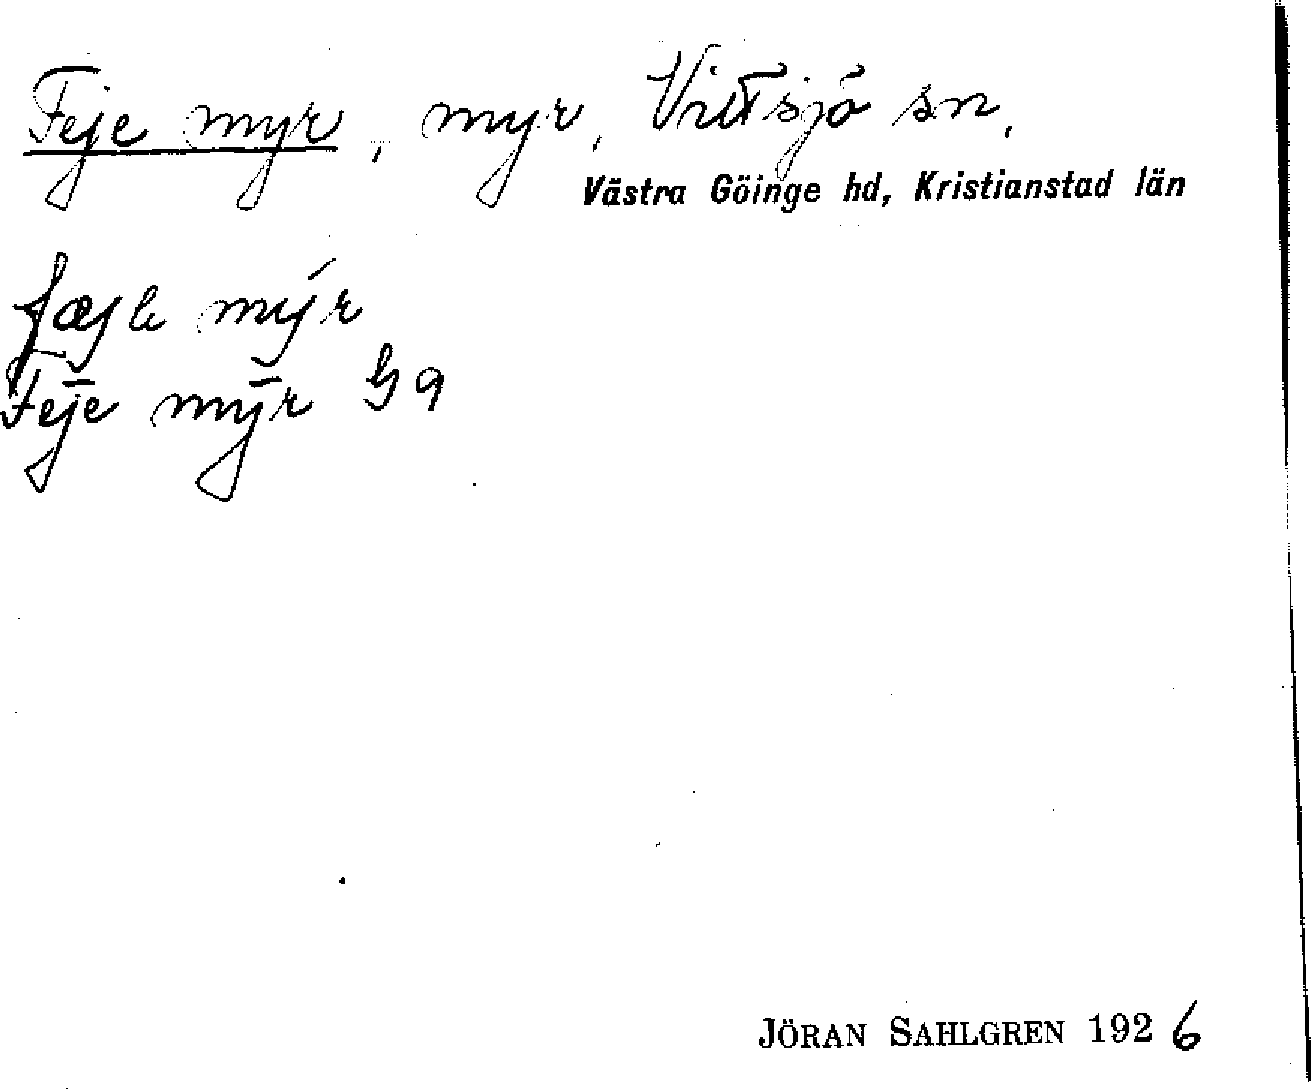 Feje myr, myr, Vittsjö sn,
Västra Göinge hd, Kristianstad län
myr
Feje myr G9
JÖRAN SAHLGREN 1926